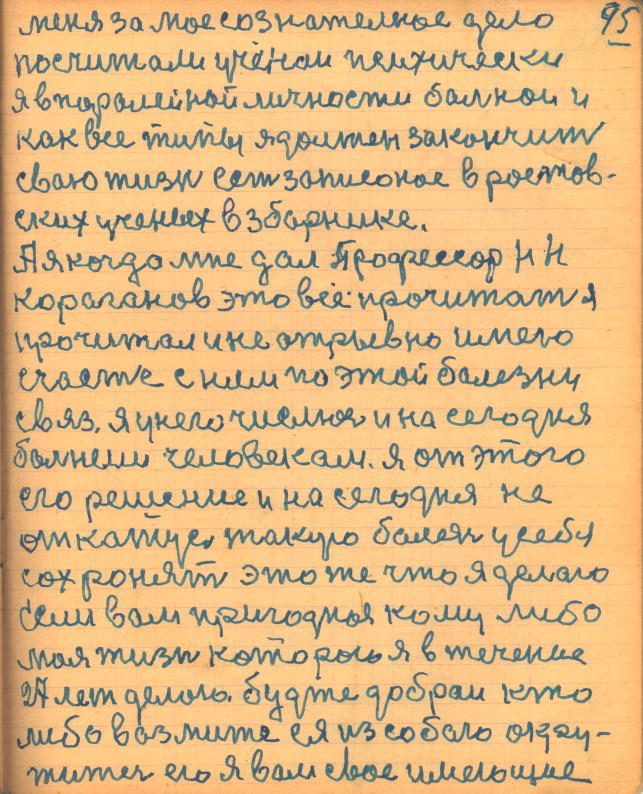 95
меня за мое сознателное дело
посчитали учёнои психически
я в паралейной личности балнои и
как все типы я должен закончит
сваю жизн ест записоное в ростов-
ских ученых в зборнике.
А я когда мне дал Професср Н Н
кораганов это всё прочитат я
прочитал и не отрывно имею
счасте с ним по этой болезни
связ. я у него числюс и на сегодня
болнеим человекам. я от этого
его решение и на сегодня не
откажус такую болезн у себя
сохронят это же что я делаю
если вам пригодная кому либо
моя жизн которыя я в течение
27 лет делаю. будте добраи кто
либо возмите ея из собою окру-
житеч его я вам свое имеющие